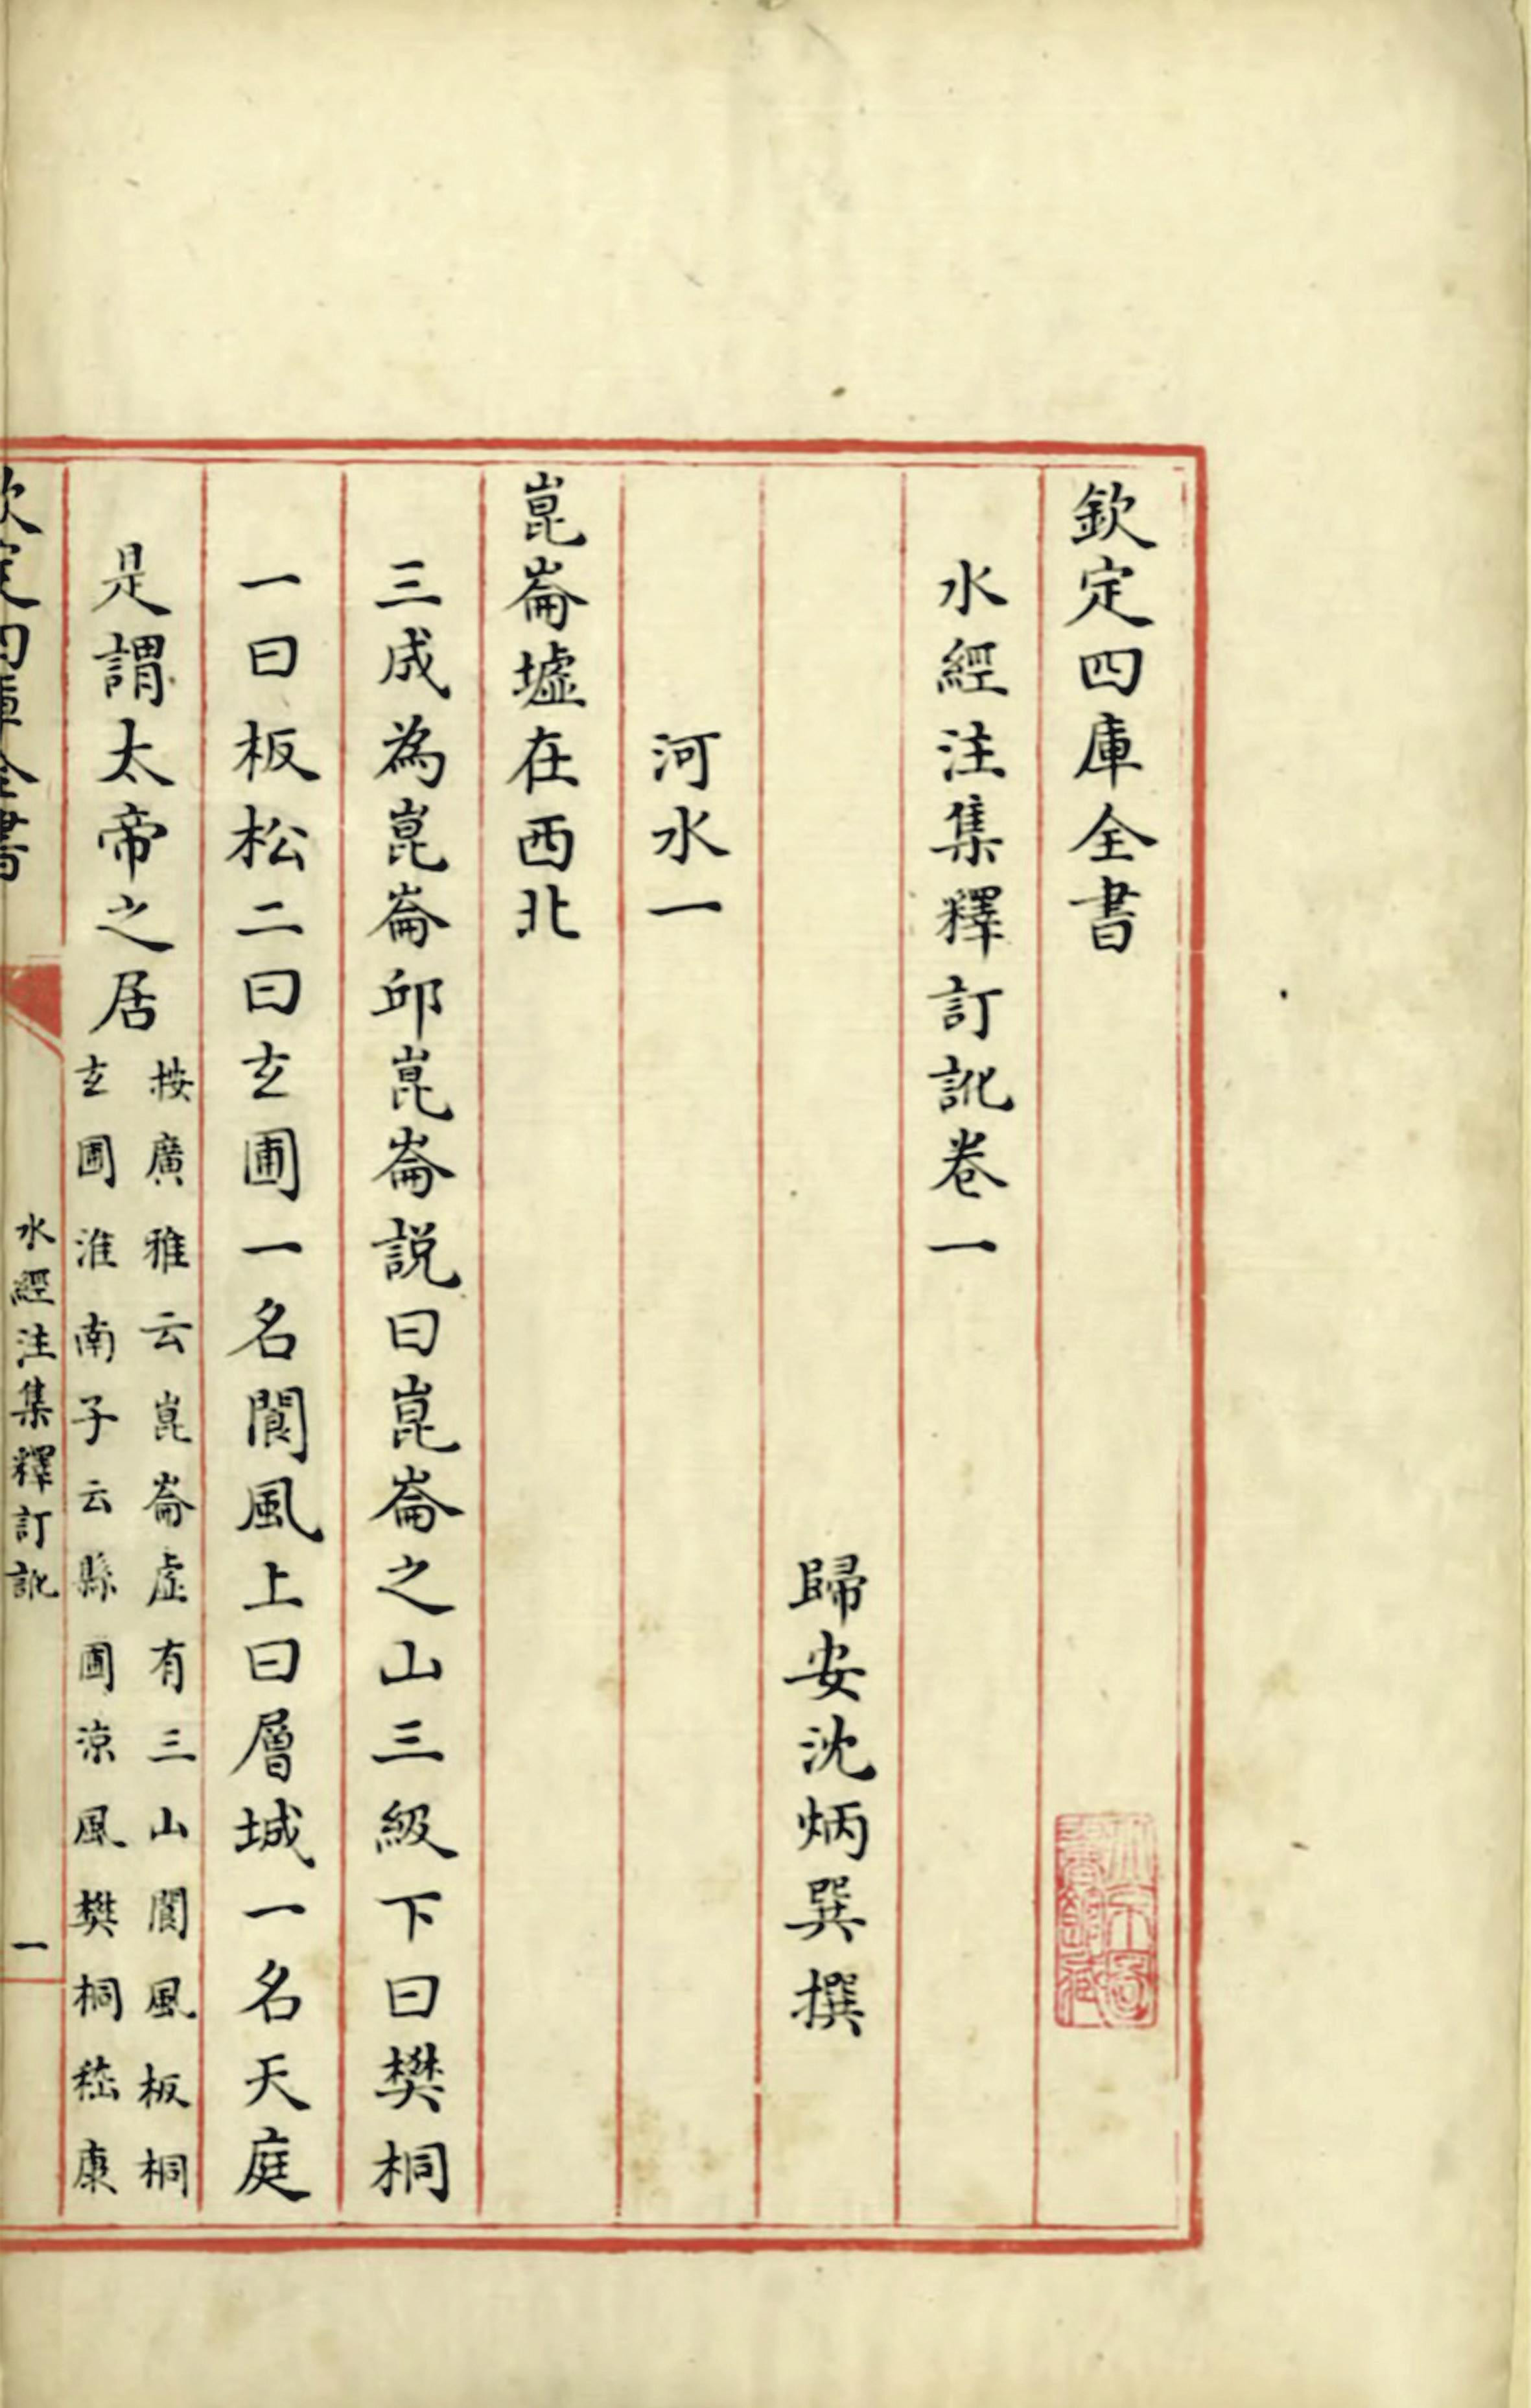 欽定四庫全書
水經注集釋訂訛卷一
歸安沈炳巽撰
河水一
崑崙墟在西北
三成為崑崙邱崑崙說曰崑崙之山三級下曰樊桐
一曰板松二曰玄圃一名閬風上曰層城一名天庭
是謂太帝之居
按廣雅云崑崙虛有三山閬風板桐
玄圃淮南子云縣圃涼風樊桐嵇康
欽定四庫全書
水經注集釋訂訛
一